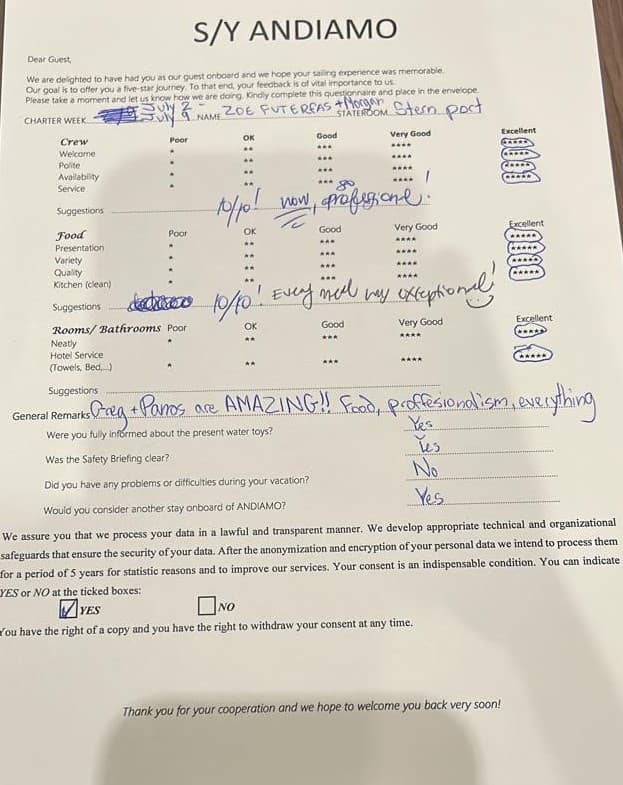 S/Y ANDIAMO
Dear Guest,
We are delighted to have had you as our guest onboard and we hope your sailing experience was memorable.
Our goal is to offer you a five-star journey. To that end, your feedback is of vital importance to us.
Please take a moment and let us know how we are doing. Kindly complete this questionnaire and place in the envelope.
CHARTER WEEK July 2 - July 9 NAME ZOE FUTERFAS + Morgan STATEROOM Stern port
Crew Poor OK Good Very Good Excellent
Welcome * ** *** **** *****
Polite * ** *** **** *****
Availability * ** *** **** *****
Service * ** *** **** *****
Suggestions 10/10! wow, so professional!
Food Poor OK Good Very Good Excellent
Presentation * ** *** **** *****
Variety * ** *** **** *****
Quality * ** *** **** *****
Kitchen (clean) * ** *** **** *****
Suggestions 10/10! Every meal was exceptional!
Rooms/ Bathrooms Poor OK Good Very Good Excellent
Neatly * ** *** **** *****
Hotel Service
(Towels, Bed,...) * ** *** **** *****
Suggestions
General Remarks Greg + Panos are AMAZING!! Food, proffesionalism, everything
Were you fully informed about the present water toys? Yes
Was the Safety Briefing clear? Yes
Did you have any problems or difficulties during your vacation? No
Would you consider another stay onboard of ANDIAMO? Yes
We assure you that we process your data in a lawful and transparent manner. We develop appropriate technical and organizational
safeguards that ensure the security of your data. After the anonymization and encryption of your personal data we intend to process them
for a period of 5 years for statistic reasons and to improve our services. Your consent is an indispensable condition. You can indicate
YES or NO at the ticked boxes:
YES NO
You have the right of a copy and you have the right to withdraw your consent at any time.
Thank you for your cooperation and we hope to welcome you back very soon!